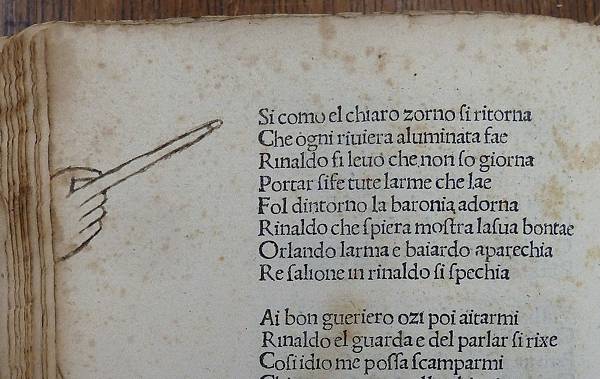 Si como el chiaro zorno ſi ritorna
Che ogni riuiera aluminata fae
Rinaldo ſi leuo che non ſo giorna
Portar ſiſe tute larme che lae
Fol dintorno la baronia adorna
Rinaldo che ſpiera moſtra laſua bontae
Orlando larma e baiardo aparechia
Re ſalione in rinaldo ſi ſpechia
Ai bon gueriero ozi poi aitarmi
Rinaldo el guarda e del parlar ſi rixe
Coſi idio me poſſa ſcamparmi